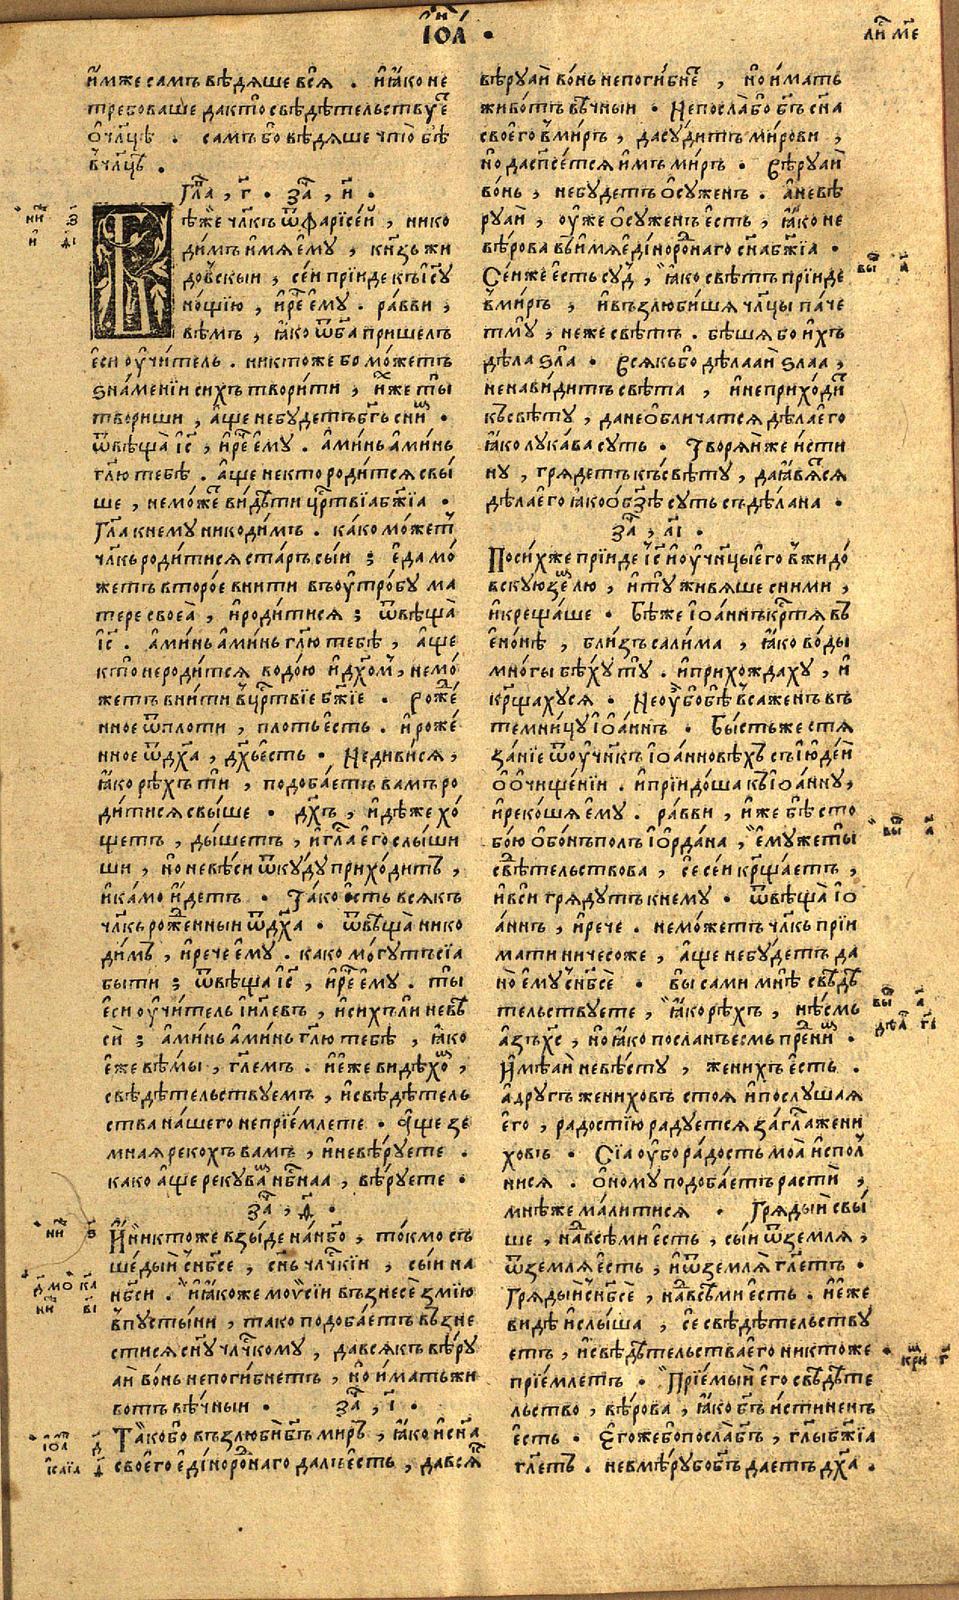 І҆ѡ҃а
ли́ст ме
и҆́мже самъ вѣдяше вся . и҆ ꙗ҆́ко не
требоваше да кто̀ свѣдѣтельствуе҆
о҆ чл҃цѣ . самъ бо вѣдяше что̀ бѣ
в̾ чл҃цѣ .
Гла̀ , г҃ . за̀ , и҃ .
Бѣ́же чл҃къ ѿ фарїсе́и , нико
ди́мъ и҆́мя є҆му̀ , кн҃зь жи
до́вскыи , се́и прїи́де къ і҆су
но́щїю , и҆ рече є҆му . равви ,
вѣ́мъ , ꙗ҆ко ѿ б҃а пришелъ
є҆си ѹ҆чи́тель . никтоже бо мо́жетъ
ѕна́менїи сихъ твори́ти , и҆́же ты̀
твориши , а҆́ще не будетъ б҃гъ с ни́м .
ѿвѣща̀ і҆с҃ , и҆ рече є҆му . а҆ми́нь а҆ми́нь
гл҃ю тебѣ̀ . а҆́ще некто роди́тся свы́
ше , не мо́же ви́дѣти цр҃твїа бж҃їа .
Гл҃а к нему никоди́мъ . ка́ко мо́жет
чл҃къ роди́тися ста́ръ сы́и ; є҆да мо́
жетъ второ́е внити въ ѹ҆тро́бу ма
тере своеа̀ , и҆ роди́тися ; ѿвѣща̀
і҆с҃ . а҆ми́нь а҆ми́нь гл҃ю тебѣ̀ , а҆́ще
кто̀ не роди́тся водо́ю и҆ дх҃ом , не мо́
жетъ вни́ти в̾ цр҃твїе бж҃їе . Роже́
нное ѿ плоти , плоть є҆сть . и҆ роже́
нное ѿ дх҃а , дх҃ъ є҆сть . Не диви́ся ,
ꙗ҆ко рѣ́хъ тѝ , подоба́етъ вамъ ро
ди́тися свы́ше . дх҃ъ , и҆дѣ́же хо́
щетъ , ды́шетъ , и҆ гла̀ є҆го слы́ши
ши , но̀ не вѣ́си ѿкуду прихо́дитъ ,
и҆ ка́мо и҆́детъ . Та́ко є҆сть всякъ
чл҃къ роже́нныи ѿ дх҃а . ѿвѣща нико
ди́мъ , и҆ рече є҆му . како мо́гутъ сїа
быти ; ѿвѣ́ща і҆с҃ , и҆ рече є҆му . ты̀
є҆си ѹ҆чи́тель і҆и҃левъ , и҆ си́хъ ли не вѣ́
си̂ ; а҆ми́нь а҆ми́нь гл҃ю тебѣ , ꙗ҆ко
є҆́же вѣ́мы , гл҃емъ . и҆ є҆́же видѣхо́м ,
свѣдѣ́тельствуемъ , и҆ свѣдѣ́тель
ства на́шего не прїе́млете . А҆ще зе
мная рекохъ вамъ , и҆ не вѣ́руете .
како а҆́ще реку вам н҃бнаа , вѣ́руете .
за̀ , ѳ҃ .
И҆ никтоже взы́де на н҃бо , то́кмо съ
ше́дыи с н҃бсе , с҃нъ чл҃чкїи , сы́и на
н҃бси . и҆ ꙗ҆коже мо́ѵсїи възнесѐ змїю
в̾ пусты́ни , тако подоба́етъ възне
стися с҃ну чл҃чкому , да всякъ вѣ́ру
аи во́нь не поги́бнетъ , но и҆мать жи
вотъ вѣ́чныи . за̀ , і҃ .
Та́ко бо възлюби́ б҃гъ миръ , ꙗ҆ко и҆ с҃на
своего є҆диноро́днаго далъ є҆сть , да вся́к
вѣ́руаи во́нь не поги́бне , но̀ и҆́мать
живо́тъ вѣ́чныи . Не посла̀ бо б҃гъ с҃на
своего в̾ ми́ръ , да су́дитъ ми́рови ,
но̀ да спсе́тся и҆́мъ ми́ръ . Вѣ́руаи
во́нь , не бу́детъ ѡ҆сужен . а҆ не вѣ́
руаи , ѹ҆же ѡ҆су́женъ є҆сть , ꙗ҆ко не
вѣ́рова въ и҆мя є҆диноро́днаго с҃на бж҃їа .
Се́и же є҆сть суд , ꙗ҆ко свѣ́тъ прїи́де
в̾ миръ , и҆ възлюби́шя чл҃цы па́че
тму̀ , неже свѣтъ . бѣ́шя бо и҆хъ
дѣла ѕла̀ . Всякъ бо дѣ́лааи ѕлаа ,
ненави́дитъ свѣ́та , и҆ не прихо́дит
къ свѣ́ту , да не ѡ҆блича́тся дѣ́ла є҆го
ꙗ҆ко лука́ва суть . Творя́и же и҆сти
ну , гряде́тъ къ свѣ́ту , да ꙗ҆вя́тся
дѣ́ла є҆го ꙗ҆ко ѡ҆ б҃зѣ суть съдѣ́лана .
за̀ , а҃і .
По си́хже прїи́де і҆с҃ и҆ ѹ҆ченицы є҆го в̾ жидо́
вскую зе́млю , и҆ ту̀ живяше с ними ,
и҆ креща́ше . Бѣ́ же і҆ѡа́ннъ кр҃тя въ
є҆но́нѣ , бли́зъ сали́ма , ꙗ҆ко во́ды
мно́гы бѣ́ху ту̀ . и҆ прихожда́ху , и҆
кр҃ща́хуся . Не ѹ҆̀ бо бѣ̀ всаженъ въ
темни́цу і҆ѡа́ннъ . Бы́сть же стя
за́нїе ѿ ѹ҆чн҃къ і҆ѡа́нновѣхъ съ і҆юде́и
ѡ҆ ѡ҆чище́нїи . и҆ прїидо́ша къ і҆ѡа́нну ,
и҆ реко́шя є҆му . ра́вви , и҆́же бѣ̀ с то
бо́ю ѡ҆бонъполъ і҆ѡ҆рда́на , є҆муже ты̀
свѣ́тельствова , се се́и кр҃ща́етъ ,
и҆ вси гряду́тъ к нему . ѿвѣ́ща і҆ѡ
а́ннъ , и҆ рече . не мо́жетъ чл҃къ прїи
мати ничесоже , а҆́ще не бу́детъ да
но̀ є҆му с н҃бсѐ . вы сами мнѣ̀ свѣ́дѣ
тельствуете , ꙗ҆ко рѣ́хъ , нѣ́смь
а҆зъ х҃с , но̀ ꙗ҆ко посланъ есмь пред ни́м .
И҆мѣ́аи невѣ́сту , жени́хъ є҆сть .
а҆ другъ жениховъ стоя и҆ послушая
є҆го , радостїю радуется за гла̀ жени
ховъ . Сїа ѹ҆бо ра́дость моа̀ и҆спол
нися . ѻ҆ному подоба́етъ расти ,
мнѣ́же ма́литися . Гряды́и свы́
ше , над всѣ́ми є҆сть , сы́и ѿ земля̀ ,
ѿ земля̀ є҆сть , и҆ ѿ земля̀ гл҃етъ .
Гряды́и с н҃бсѐ , над всѣ́ми є҆сть . и҆ є҆́же
видѣ̀ и҆ слы́ша , се свѣдѣ́тельству
етъ , и҆ свѣдѣ́тельства є҆го никтоже
прїе́млетъ . Прїе́мыи є҆го свѣ́дѣте
льство , вѣ́рова , ꙗ҆ко б҃гъ и҆́стиненъ
є҆сть . Є҆гоже бо посла̀ б҃гъ , гл҃ы бж҃їа
гл҃етъ . не в мѣ́ру бо б҃гъ дае́тъ дх҃а .